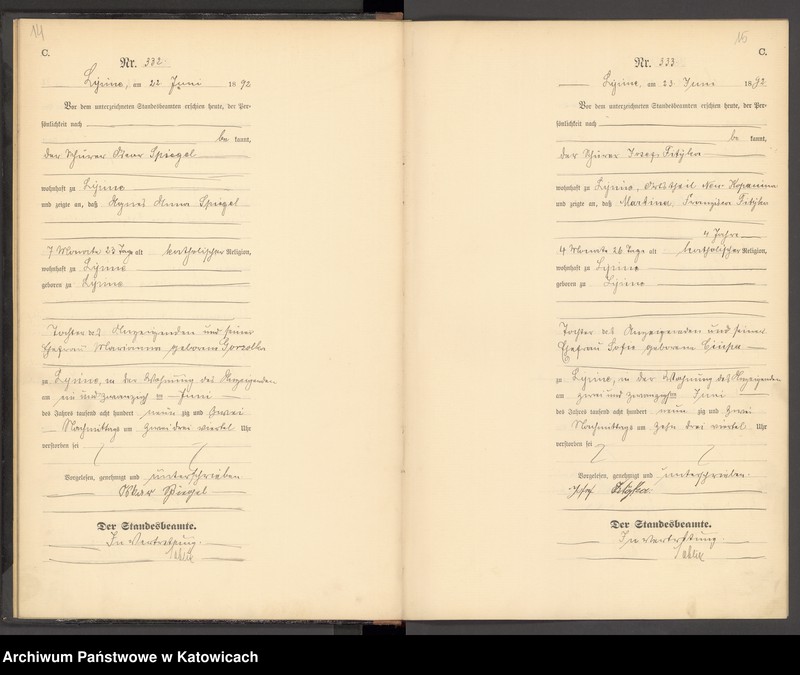 14
C.
Nr. 332
Lipine, am 22 Juni 1892
Vor dem unterzeichneten Standesbeamten erschien heute, der Per-
sönlichkeit nach
be kannt,
der Schürer Spiegel
wohnhaft zu Lipine
und zeigte an, daß Agnes Anna Spiegel
7 Monate 23 Tage alt katholischer Religion,
wohnhaft zu Lipine
geboren zu Lipine
Tochter des Anzeigenden und seiner
Ehefrau Marianna geborene
zu Lipine, in der Wohnung des Anzeigenden
am ein und zwanzigsten Juni
des Jahres tausend acht hundert neun zig und zwei
Nachmittags um drei viertel Uhr
verstorben sei
Vorgelesen, genehmigt und unterschrieben
Spiegel
Der Standesbeamte.
In Vertretung.
15
C.
Nr. 333
Lipine, am 23 Juni 1892
Vor dem unterzeichneten Standesbeamten erschien heute, der Per-
sönlichkeit nach
be kannt,
der Schürer Josef
wohnhaft zu Lipine, Ortstheil Neu Kopanina
und zeigte an, daß Martina, Franziska
4 Jahre
4 Monate 26 Tage alt katholischer Religion,
wohnhaft zu Lipine
geboren zu Lipine
Tochter des Anzeigenden und seiner
Ehefrau Sofie geborene
zu Lipine, in der Wohnung des Anzeigenden
am zwei und zwanzigsten Juni
des Jahres tausend acht hundert neun zig und zwei
Nachmittags um zehn drei viertel Uhr
verstorben sei
Vorgelesen, genehmigt und unterschrieben
Der Standesbeamte.
In Vertretung.
Archiwum Państwowe w Katowicach